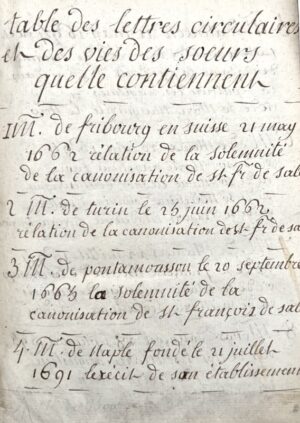 table des lettres circulaires
et des vies des soeurs
quelle contiennent
1 M. de fribourg en suisse 21 may
1662 rélation de la solemnité
de la canonisation de st fr de sal
2 M. de turin le 25 juin 1662
rélation de la canonisation de st fr de sa
3 M. de pontamousson le 20 septembre
1665 la solemnité de la
canonisation de st françois de sal
4 M. de staple fondé le 21 juillet
1691 lerécit de son établissement